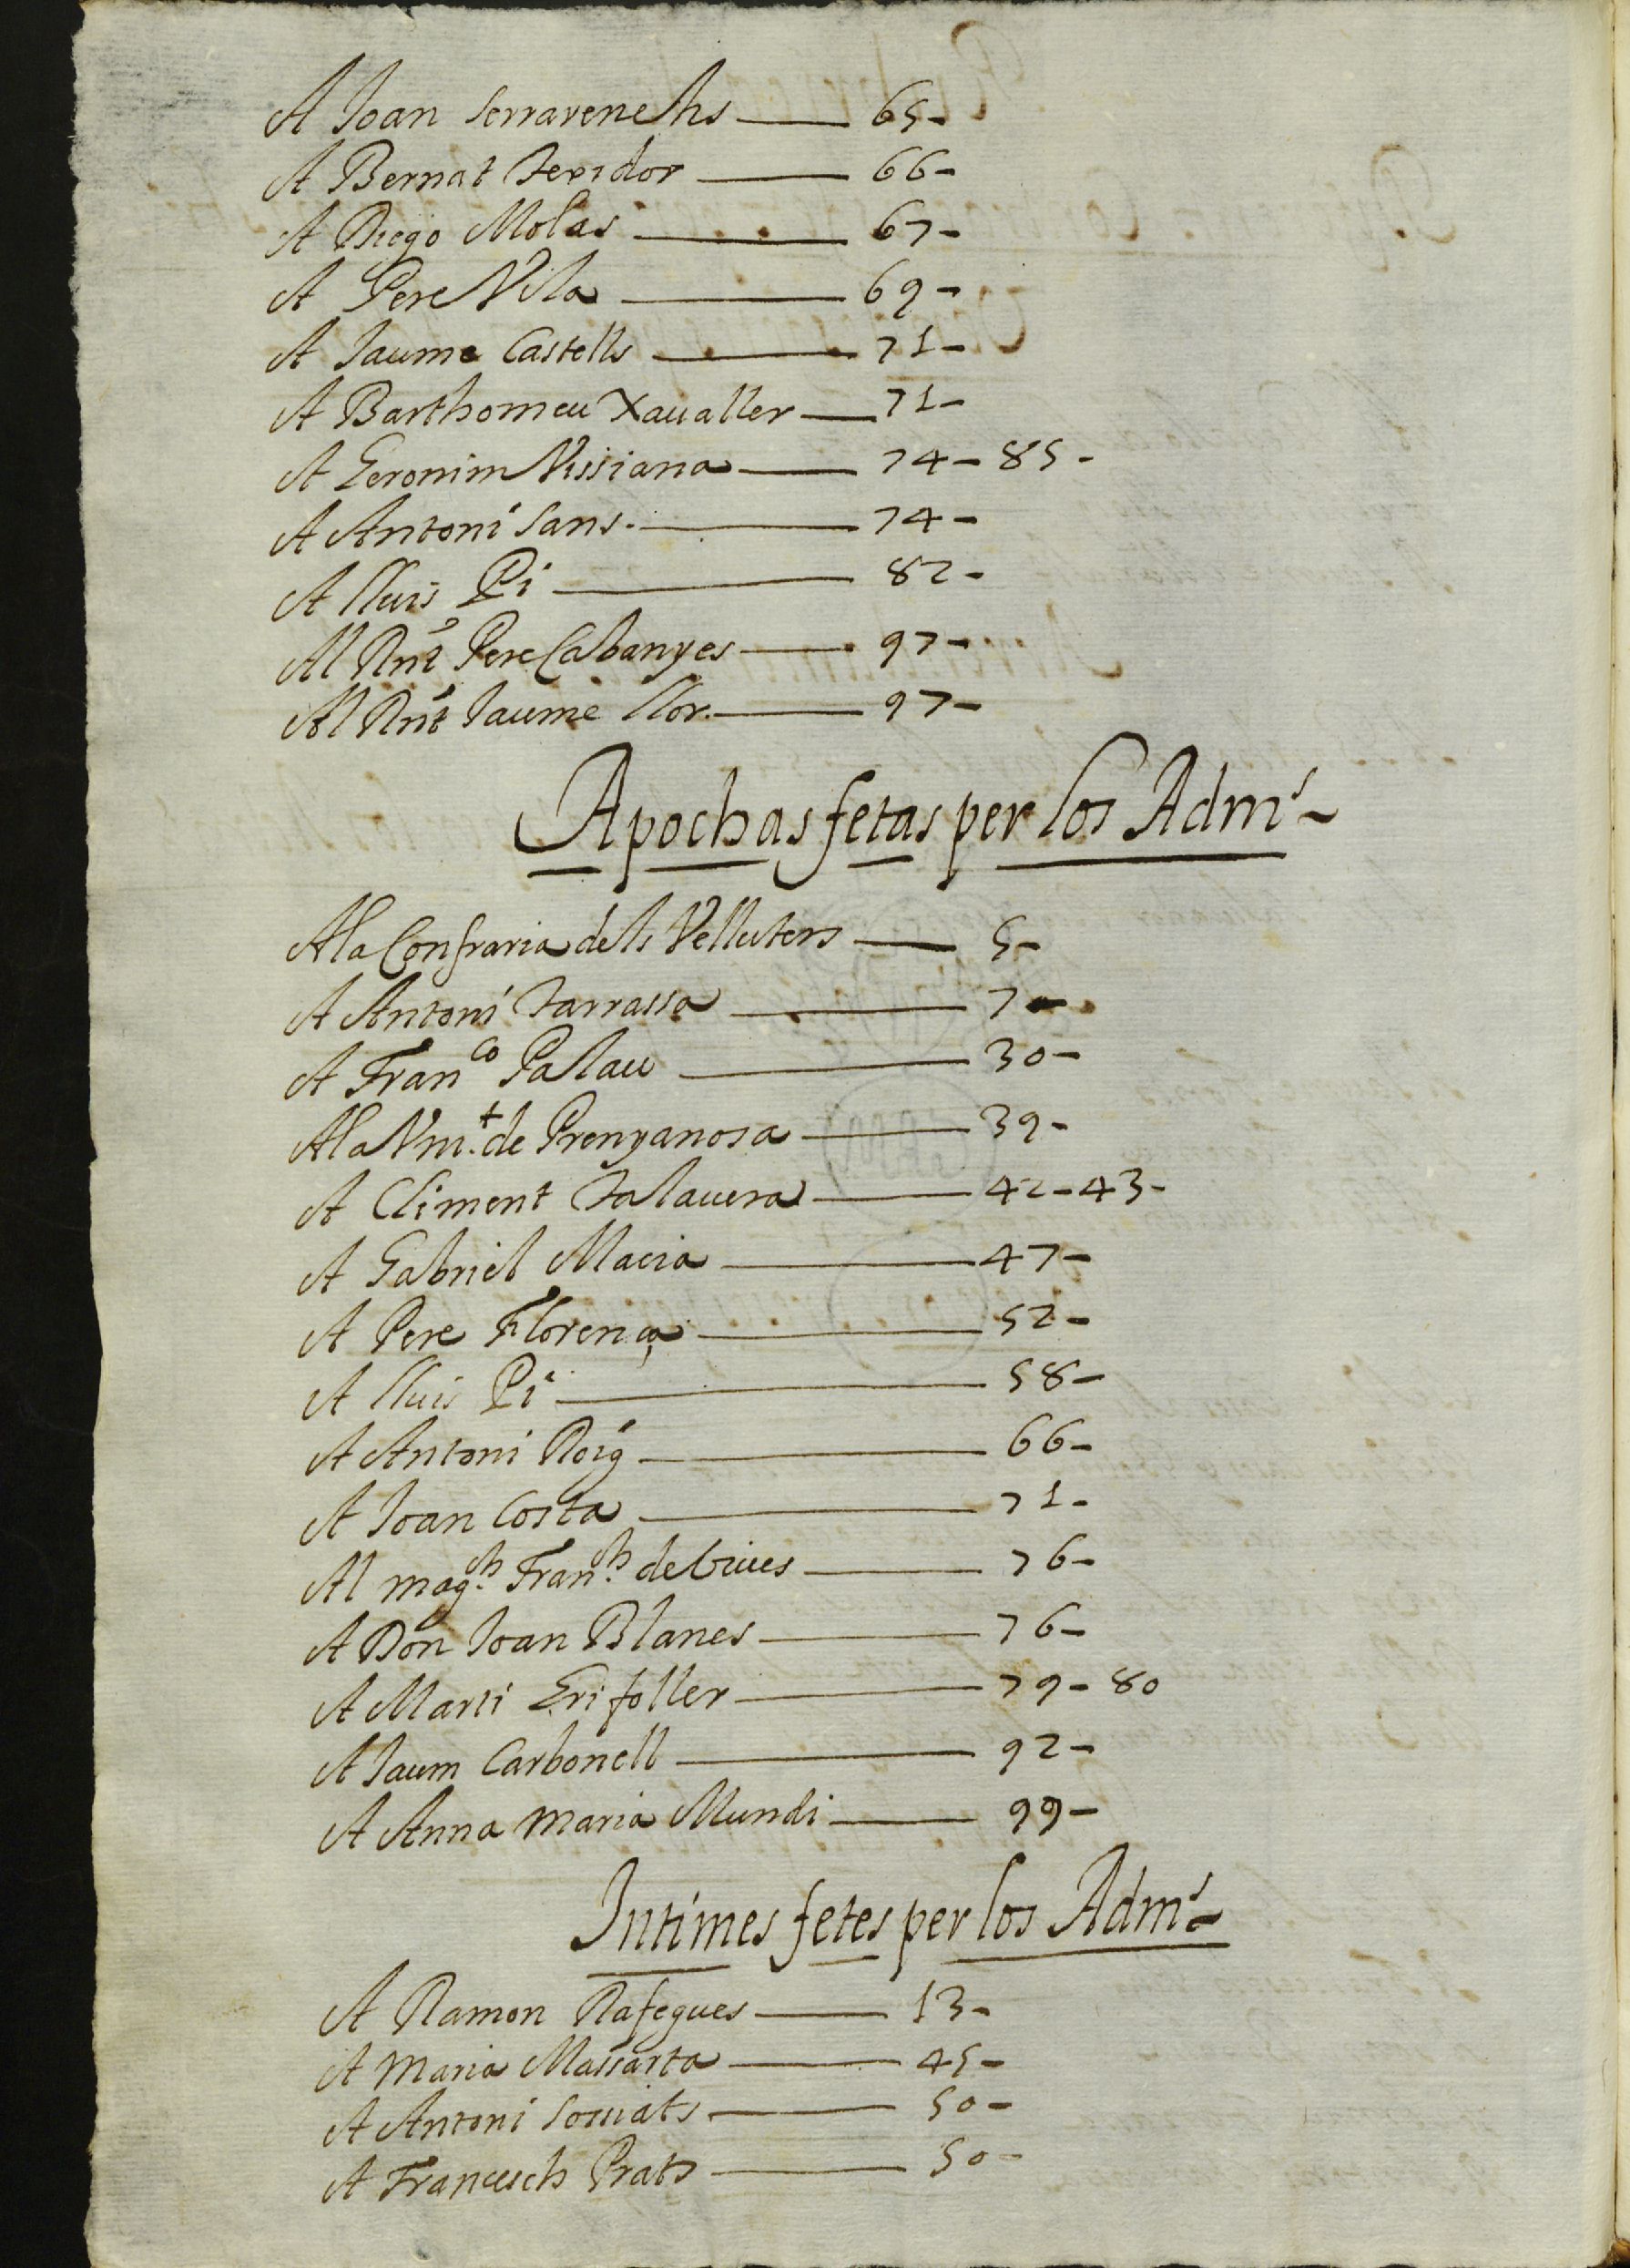 A Joan Serrarenchs — 65-
A Bernat Texidor — 66-
A Diego Molas — 67-
A Pere Vila — 69-
A Jaume Castells — 71-
A Barthomeu Xaualler — 71-
A Geronim Vissiana — 74- 85-
A Antoni Sans. — 74-
A lluis Pi — 82-
Al Rnt Pere Cabanyes — 97-
Al Rnt Jaume llor. — 97-
Apochas fetas per los Adm.s
A la Confraria dels Velluters — 5-
A Antoni Tarrassa — 7-
A Fran.co Palau — 30-
A la Vni.t de Prenyanosa — 39-
A Climent Talauera — 42-43-
A Gabriel Macia — 47-
A Pere Florença — 52-
A lluis Pi — 58-
A Antoni Roig — 66-
A Joan Costa — 71-
Al mag.ch Fran.ch de Viues — 76-
A Don Joan Blanes — 76-
A Marti Grifoller — 79- 80
A Jaum Carbonell — 92-
A Anna Maria Mundi — 99-
Intimes fetes per los Adm.s
A Ramon Rafegues — 13-
A Maria Massarta — 45-
A Antoni — 50-
A Francesch Prats — 50-